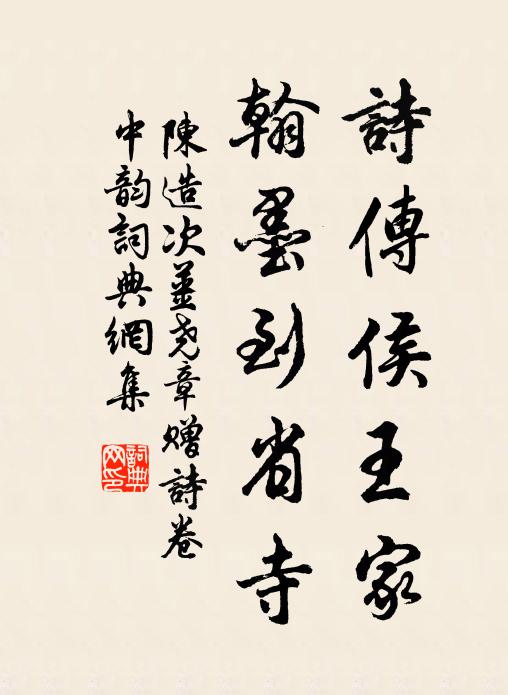 詩傳侯王家
翰墨到省寺
陳造次薑堯章贈詩卷
中韵詞典網集
詞典網印